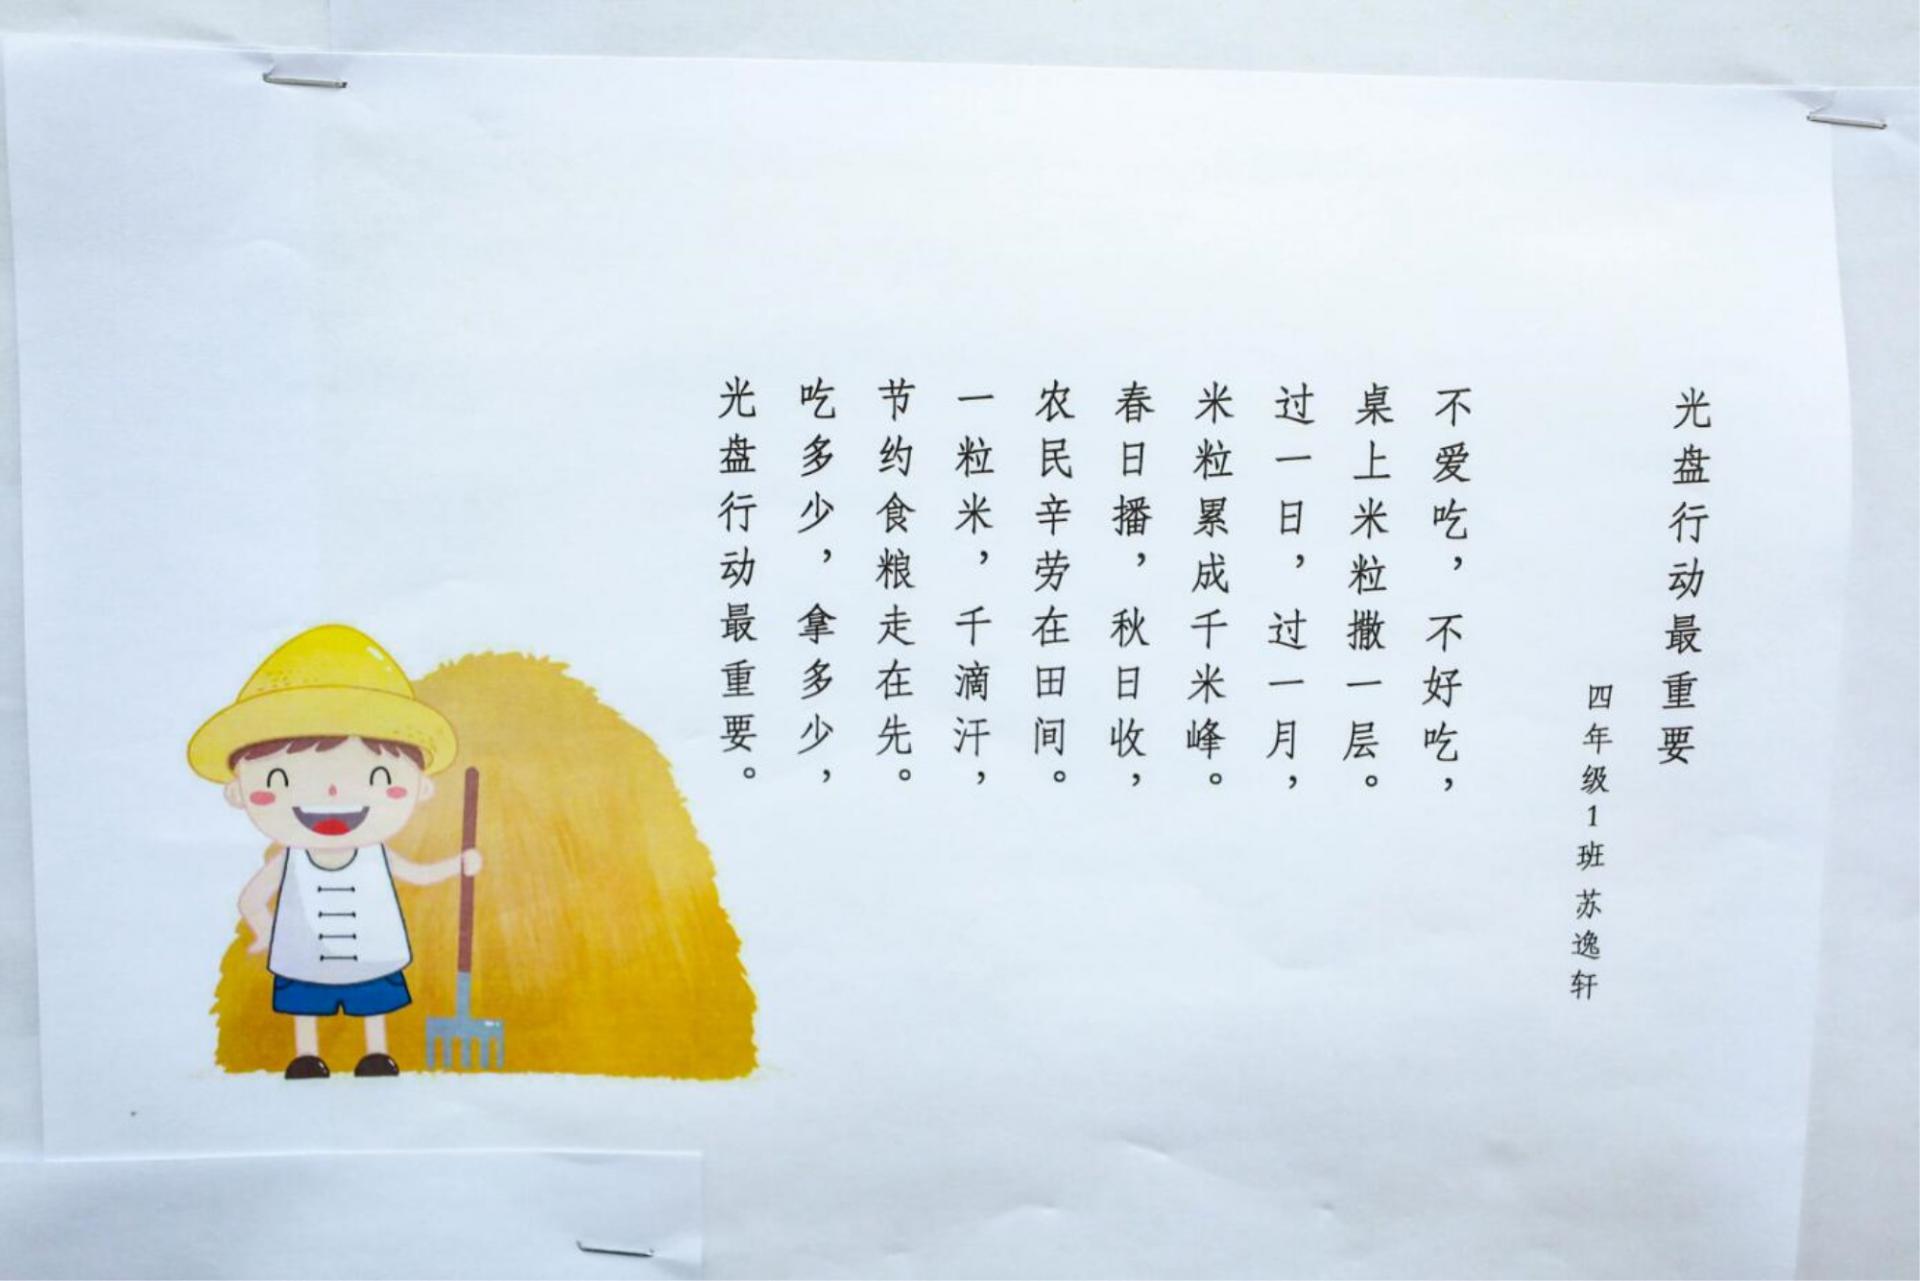 光盘行动最重要
四年级1班 苏逸轩
不爱吃，不好吃，
桌上米粒撒一层。
过一日，过一月，
米粒累成千米峰。
春日播，秋日收，
农民辛劳在田间。
一粒米，千滴汗，
节约食粮走在先。
吃多少，拿多少，
光盘行动最重要。